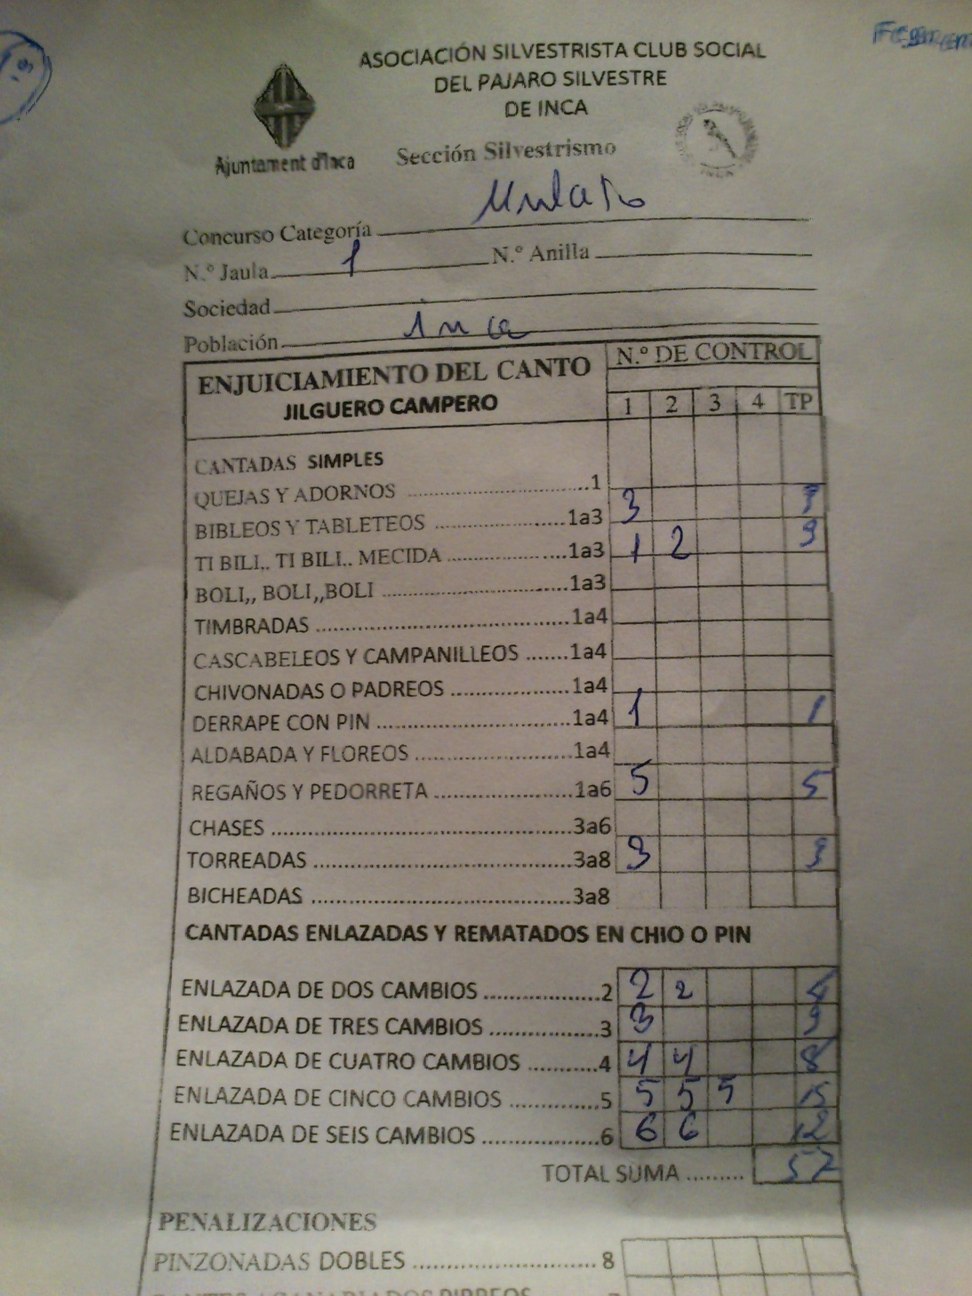 ASOCIACIÓN SILVESTRISTA CLUB SOCIAL
DEL PAJARO SILVESTRE
DE INCA
Ajuntament d'Inca
Sección Silvestrismo
Concurso Categoría Mulato
N.º Jaula 1 N.º Anilla
Sociedad
Población inca
ENJUICIAMIENTO DEL CANTO N.º DE CONTROL
JILGUERO CAMPERO 1 2 3 4 TP
CANTADAS SIMPLES
QUEJAS Y ADORNOS ..........1 3 3
BIBLEOS Y TABLETEOS ..........1a3 1 2 3
TI BILI,. TI BILI.. MECIDA ..........1a3
BOLI,, BOLI,,BOLI ..........1a3
TIMBRADAS ..........1a4
CASCABELEOS Y CAMPANILLEOS .......1a4
CHIVONADAS O PADREOS ..........1a4
DERRAPE CON PIN ..........1a4 1 1
ALDABADA Y FLOREOS ..........1a4
REGAÑOS Y PEDORRETA ..........1a6 5 5
CHASES ..........3a6
TORREADAS ..........3a8 3 3
BICHEADAS ..........3a8
CANTADAS ENLAZADAS Y REMATADOS EN CHIO O PIN
ENLAZADA DE DOS CAMBIOS ..........2 2 2 4
ENLAZADA DE TRES CAMBIOS ..........3 3 3
ENLAZADA DE CUATRO CAMBIOS ..........4 4 4 8
ENLAZADA DE CINCO CAMBIOS ..........5 5 5 5 15
ENLAZADA DE SEIS CAMBIOS ..........6 6 6 12
TOTAL SUMA ......... 57
PENALIZACIONES
PINZONADAS DOBLES .......... 8